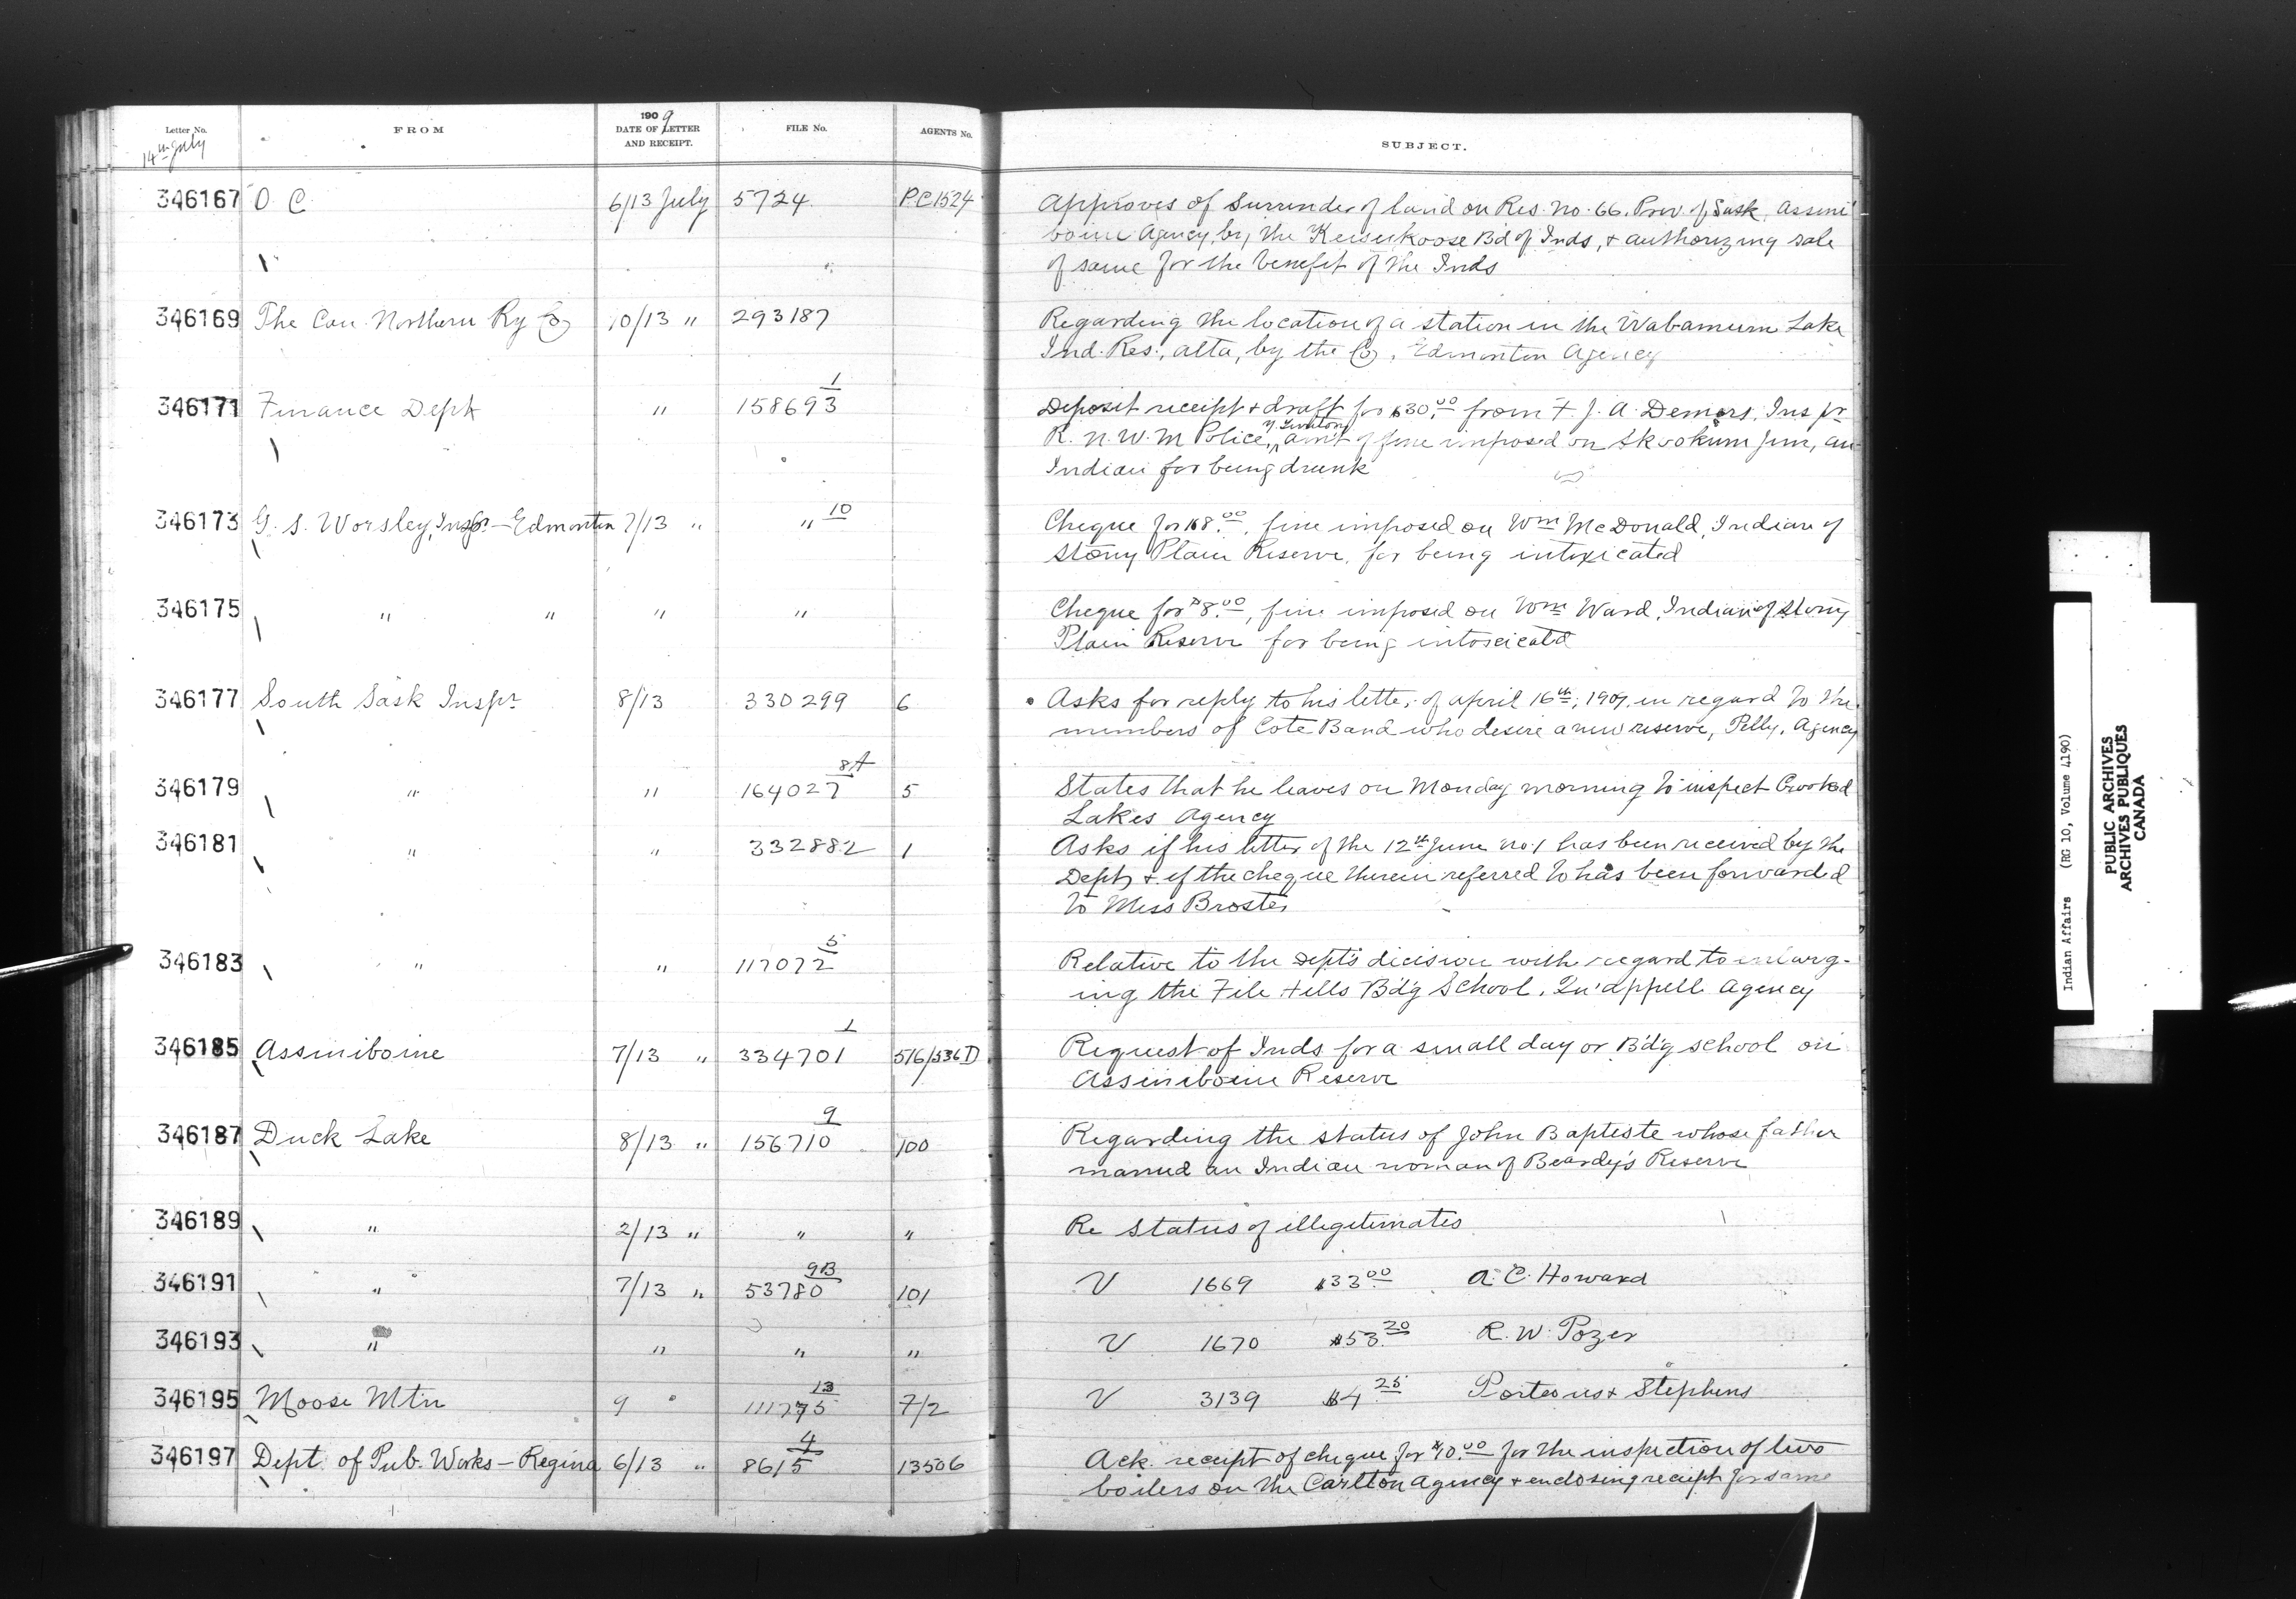 Letter No.
14th July
FROM
1909
DATE OF LETTER
AND RECEIPT.
FILE No.
AGENTS No.
SUBJECT.
346167 O. C. 6/13 July 5724 P.C 1524 Approves of Surrender of land on Res. No. 66. Prov. of Sask, Assini
boine Agency, by the Keisukoose Bd of Inds, + authorizing sale
" of same for the benefit of the Inds
346169 The Can. Northern Ry Co 10/13 " 293187 Regarding the location of a station in the Wabamum Lake
Ind. Res., Alta, by the Co. Edmonton Agency
1
346171 Finance Dept " 158693 Deposit receipt + draft for $30.00 from F. J. A. Demers, Inspr
Y. Territory
R. N. W. M Police, am't of fine imposed on Skookum Jim, an
Indian for being drunk
346173 G. S. Worsley, Inspr - Edmonton 7/13 " " 10 Cheque for $8.00, fine imposed on Wm McDonald, Indian of
Stony Plain Reserve, for being intoxicated
346175 " " " " Cheque for $8.00, fine imposed on Wm Ward, Indian of Stony
Plain Reserve for being intoxicatd
346177 South Sask Inspr 8/13 330299 6 Asks for reply to his letter of April 16th, 1909, in regard to the
members of Cote Band who desire a new reserve, Pelly, Agency
8A
346179 " " 164027 5 States that he leaves on Monday morning to inspect Crooked
Lakes Agency
346181 " " 332882 1 Asks if his letter of the 12th June No. 1 has been received by the
Dept, + if the cheque therein referred to has been forwarded
to Miss Broster
5
346183 " " 117072 Relative to the Dept's decision with regard to enlarg-
ing the File Hills Bd'g School, Qu'appell Agency
1
346185 Assiniboine 7/13 " 334701 516/536D Request of Inds for a small day or Bd'g school on
Assiniboine Reserve
9
346187 Duck Lake 8/13 " 156710 100 Regarding the status of John Baptiste whose father
married an Indian woman of Beardy's Reserve
346189 " 2/13 " " " Re status of illegitimates
9B
346191 " 7/13 " 53780 101 V 1669 $33.00 A. C. Howard
346193 " " " " V 1670 $53.20 R. W. Pozer
13
346195 Moose Mtn 9 " 111775 7/2 V 3139 $4.25 Porteous + Stephens
4
346197 Dept. of Pub. Works - Regina 6/13 " 8615 13506 Ack. receipt of cheque for $10.00 for the inspection of two
boilers on the Carlton Agency + enclosing receipt for same
Indian Affairs (RG 10, Volume 4190)
PUBLIC ARCHIVES
ARCHIVES PUBLIQUES
CANADA